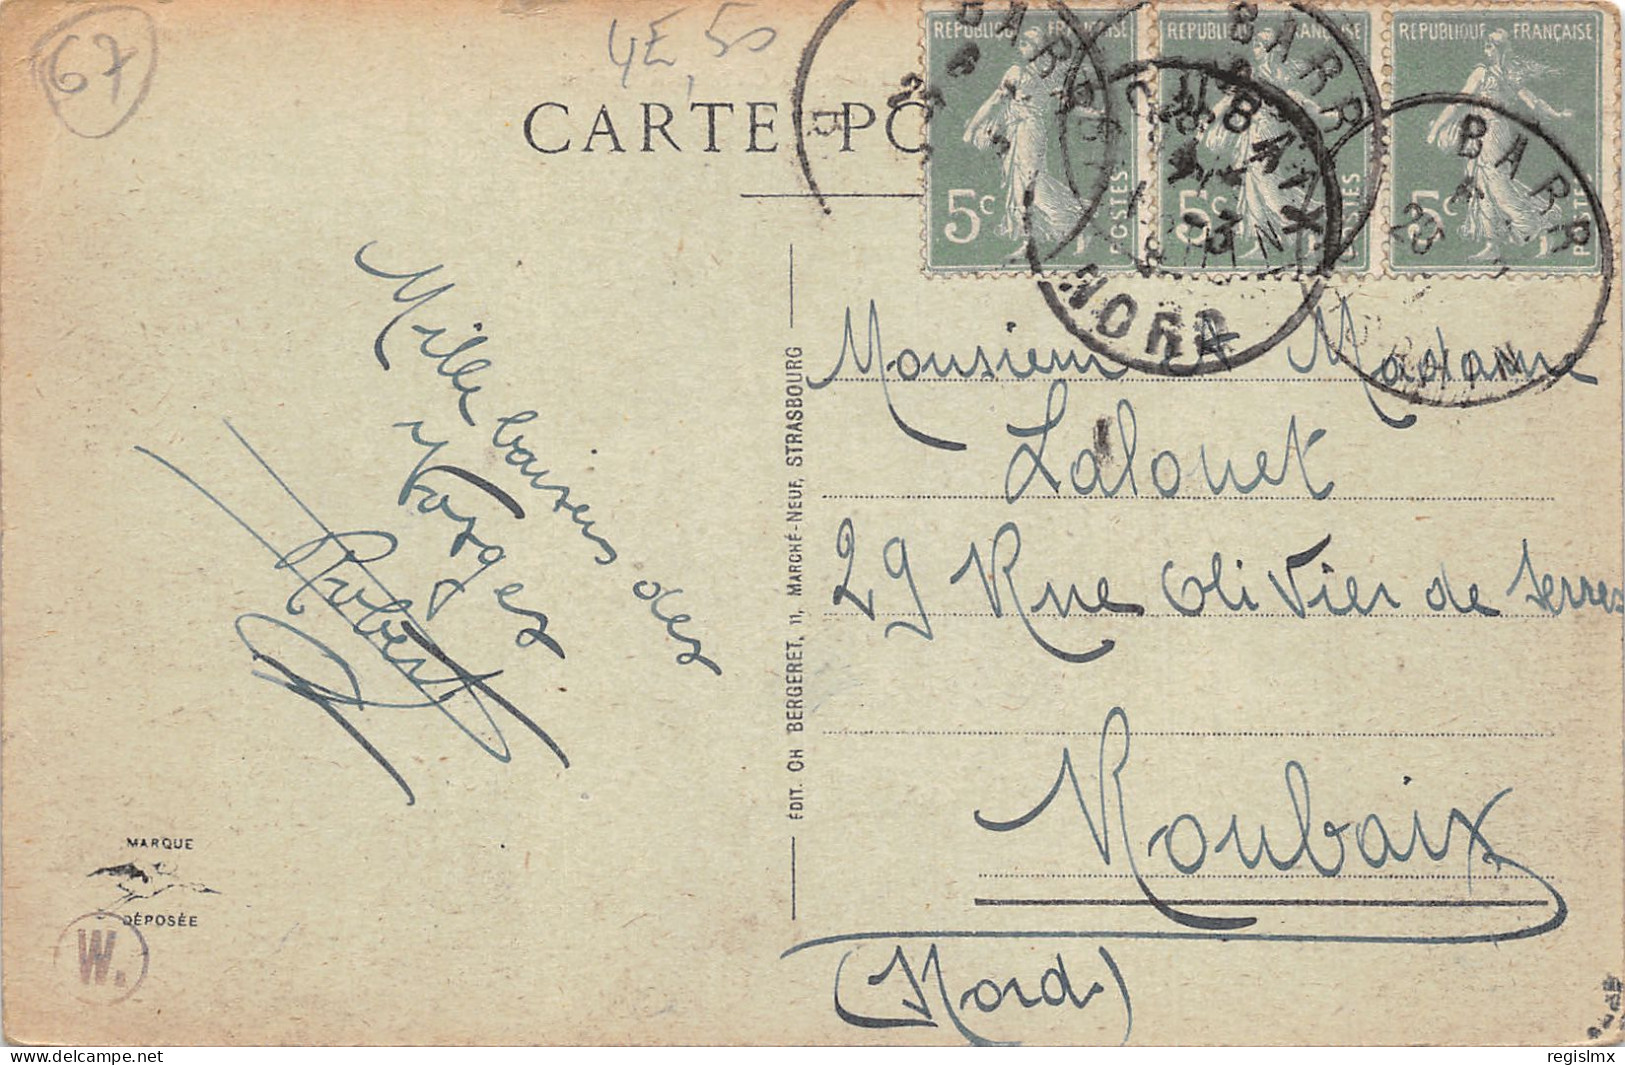 67
4E,50
CARTE PO
RÉPUBLIQUE FRANÇAISE
5c
POSTES
RÉPUBLIQUE FRANÇAISE
5c
POSTES
RÉPUBLIQUE FRANÇAISE
5c
POSTES
BARR
BARR
BARR
25
NORD
Mille baisers des
Vosges
Robert
ÉDIT. CH BERGERET, 11, MARCHÉ-NEUF, STRASBOURG
Monsieur & Madame
Lalouet
29 Rue Olivier de Serres
Roubaix
(Nord)
MARQUE
DÉPOSÉE
W.
regislmx